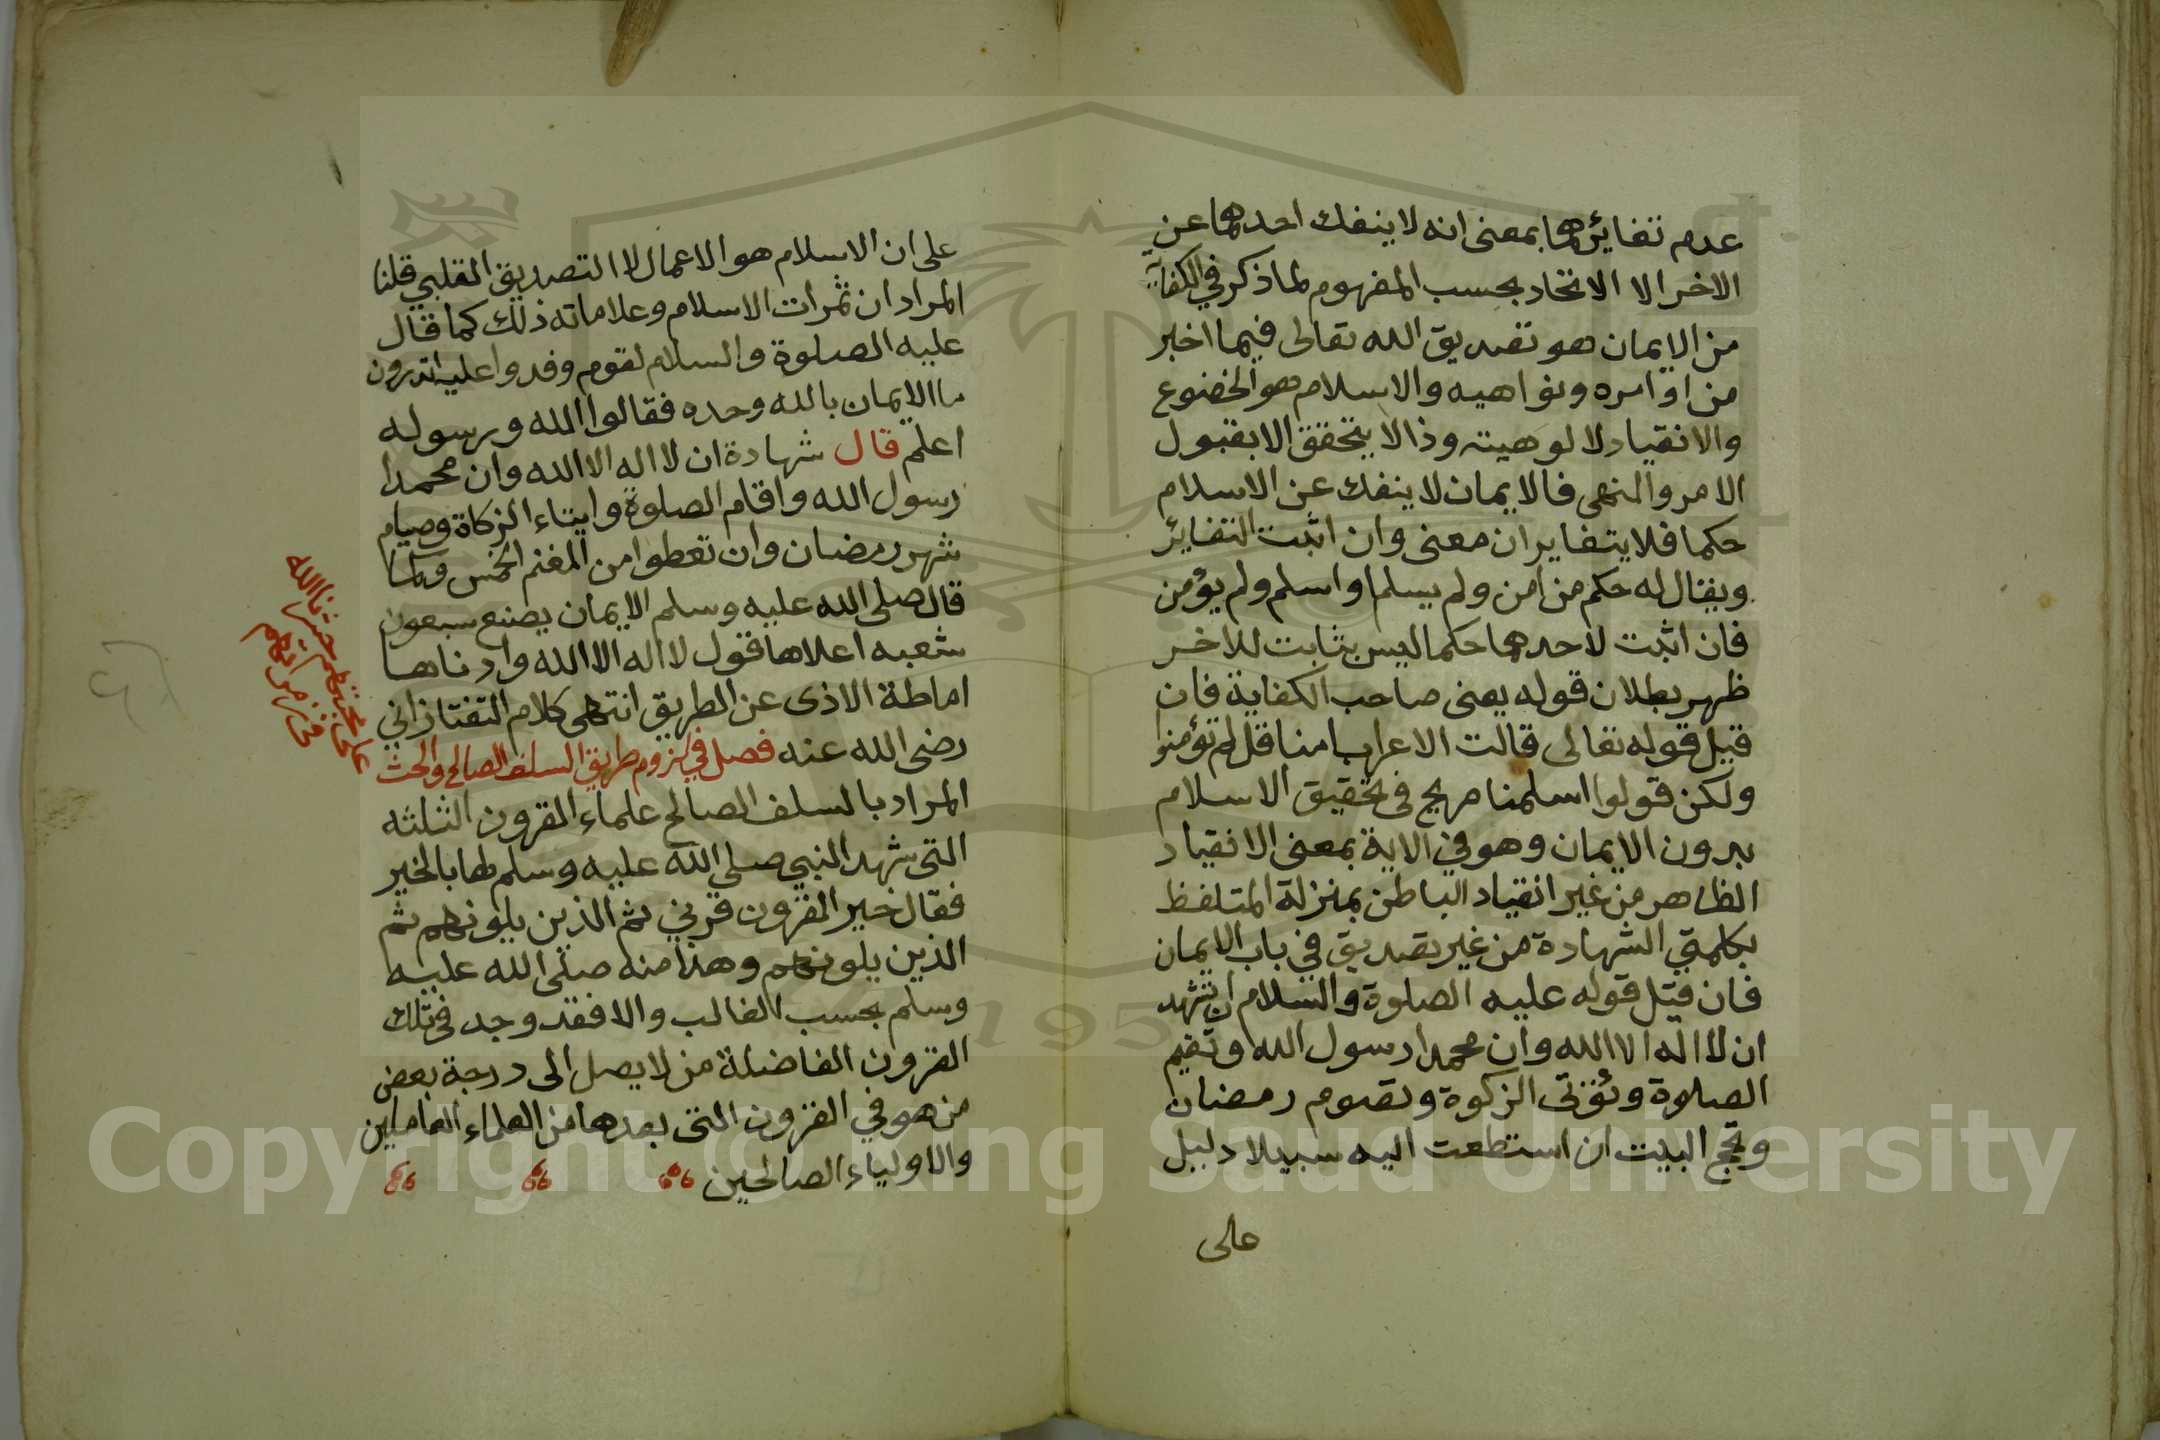 عدم تغايرهما بمعنى انه لا ينفك احدهما عن
الاخر الا الاتحاد بحسب المفهوم لما ذكر في الكفاية
من الايمان هو تصديق الله تعالى فيما اخبر
من اوامره ونواهيه والاسلام هو الخضوع
والانقياد لالوهيته وذا لا يتحقق الا بقبول
الامر والنهى فالايمان لا ينفك عن الاسلام
حكما فلا يتغايران معنى وان اثبت التغاير
ويقال له حكم من امن ولم يسلم او اسلم ولم يؤمن
فان اثبت لاحدهما حكما ليس بثابت للاخر
ظهر بطلان قوله يعنى صاحب الكفاية فان
قيل قوله تعالى قالت الاعراب امنا قل لم تؤمنوا
ولكن قولوا اسلمنا صريح فى تحقيق الاسلام
بدون الايمان وهو في الاية بمعنى الانقياد
الظاهر من غير انقياد الباطن بمنزلة المتلفظ
بكلمتي الشهادة من غير تصديق في باب الايمان
فان قيل قوله عليه الصلوة والسلام ان تشهد
ان لا اله الا الله وان محمدا رسول الله وتقيم
الصلوة وتؤتى الزكوة وتصوم رمضان
وتحج البيت ان استطعت اليه سبيلا دليل
على
على ان الاسلام هو الاعمال لا التصديق القلبي قلنا
المراد ان ثمرات الاسلام وعلاماته ذلك كما قال
عليه الصلوة والسلام لقوم وفدوا عليه اتدرون
ما الايمان بالله وحده فقالوا الله ورسوله
اعلم قال شهادة ان لا اله الا الله وان محمدا
رسول الله واقام الصلوة وايتاء الزكاة وصيام
شهر رمضان وان تعطوا من المغنم الخمس وكما
قال صلى الله عليه وسلم الايمان بضع سبعون
شعبه اعلاها قول لا اله الا الله وادناها
اماطة الاذى عن الطريق انتهى كلام التفتازاني
رضى الله عنه فصل في لزوم طريق السلف الصالح والحث
على محبتهم حشرنا الله
فى زمرتهم
المراد بالسلف الصالح علماء القرون الثلثه
التى شهد النبي صلى الله عليه وسلم لها بالخير
فقال خير القرون قرني ثم الذين يلونهم ثم
الذين يلونهم وهذا منه صلى الله عليه
وسلم بحسب الغالب والا فقد وجد في تلك
القرون الفاضلة من لا يصل الى درجة بعض
من هو في القرون التى بعدها من العلماء العاملين
والاولياء الصالحين
Copyright © King Saud University
195